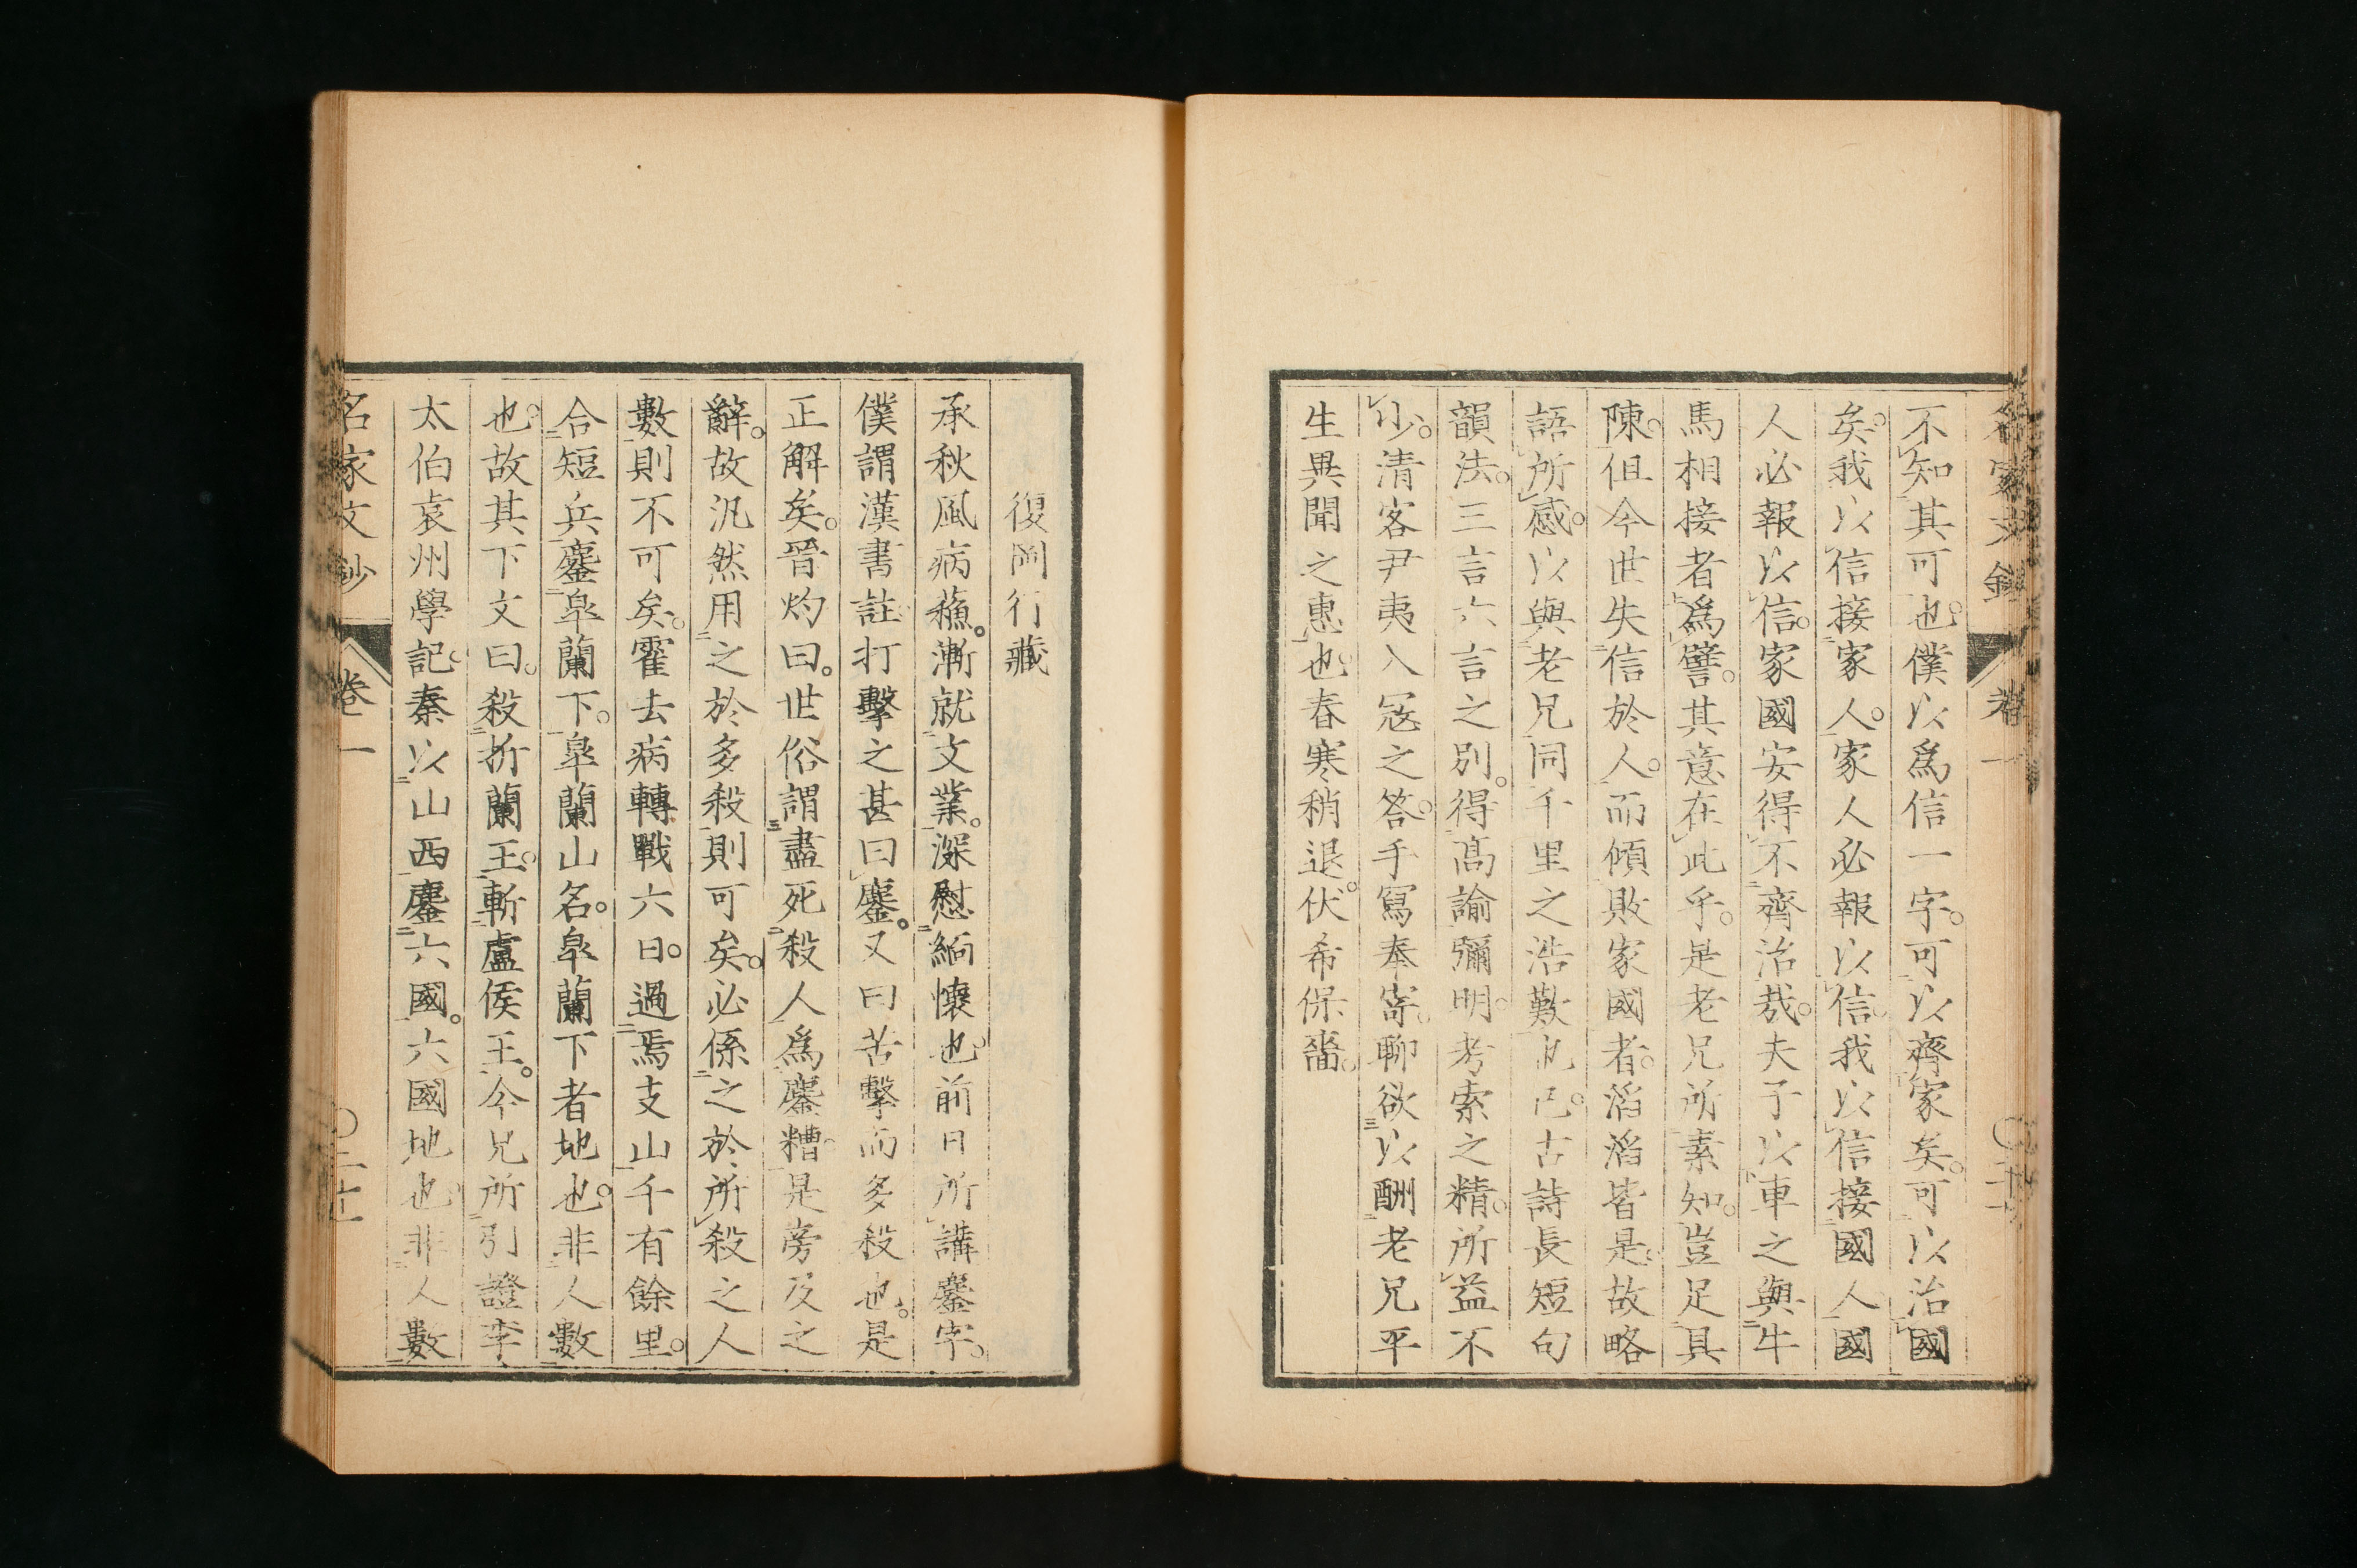 名家文鈔 卷一
不知其可也。僕以爲信一字。可以齊家矣。可以治國
矣。我以信接家人。家人必報以信。我以信接國人。國
人必報以信。家國安得不齊治哉。夫子以車之與牛
馬相接者。爲譬。其意在此乎。是老兄所素知。豈足具
陳。但今世失信於人。而傾敗家國者。滔滔皆是。故略
語所感。以與老兄同千里之浩歎也已。古詩長短句
韻法。三言六言之別。得高諭彌明。考索之精。所益不
少。清客尹夷入寇之答。手寫奉寄。聊欲以酬老兄平
生異聞之惠也。春寒稍退。伏希保嗇。
復岡行藏
承秋風病蘓。漸就文業。深慰緬懷也。前日所講鏖字。
僕謂漢書註。打擊之甚曰鏖。又曰苦擊而多殺也。是
正解矣。晉灼曰。世俗謂盡死殺人爲鏖糟。是旁及之
辭。故汎然用之於多殺則可矣。必係之於所殺之人
數則不可矣。霍去病轉戰六日。過焉支山千有餘里。
合短兵鏖皐蘭下。皐蘭山名。皐蘭下者地也。非人數
也。故其下文曰。殺折蘭王。斬盧侯王。今兄所引證李
太伯袁州學記。秦以山西鏖六國。六國地也。非人數
名家文鈔 卷一